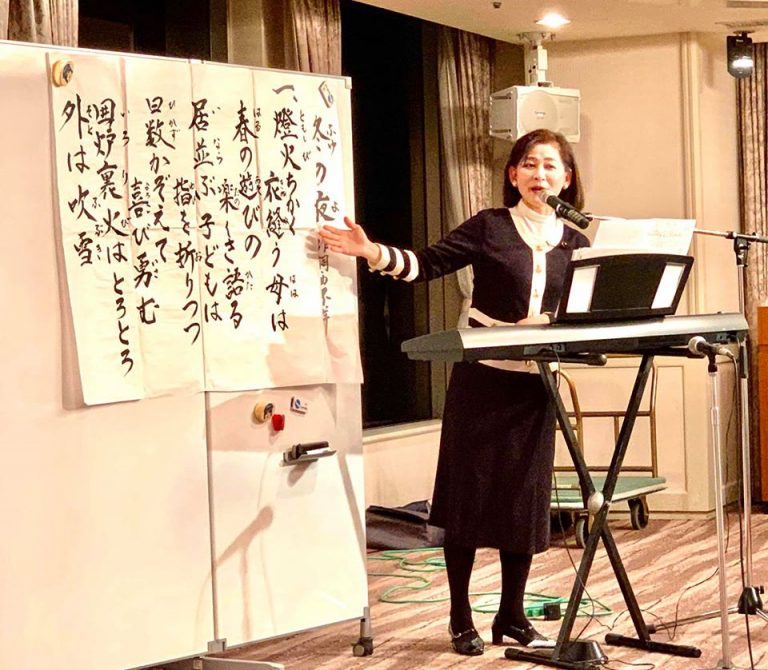 冬の夜
一、燈火ちかく 衣縫う母は
春の遊びの 楽しさ語る
居並ぶ子どもは 指を折りつつ
日数かぞえて 喜び勇む
囲炉裏火はとろとろ
外は吹雪